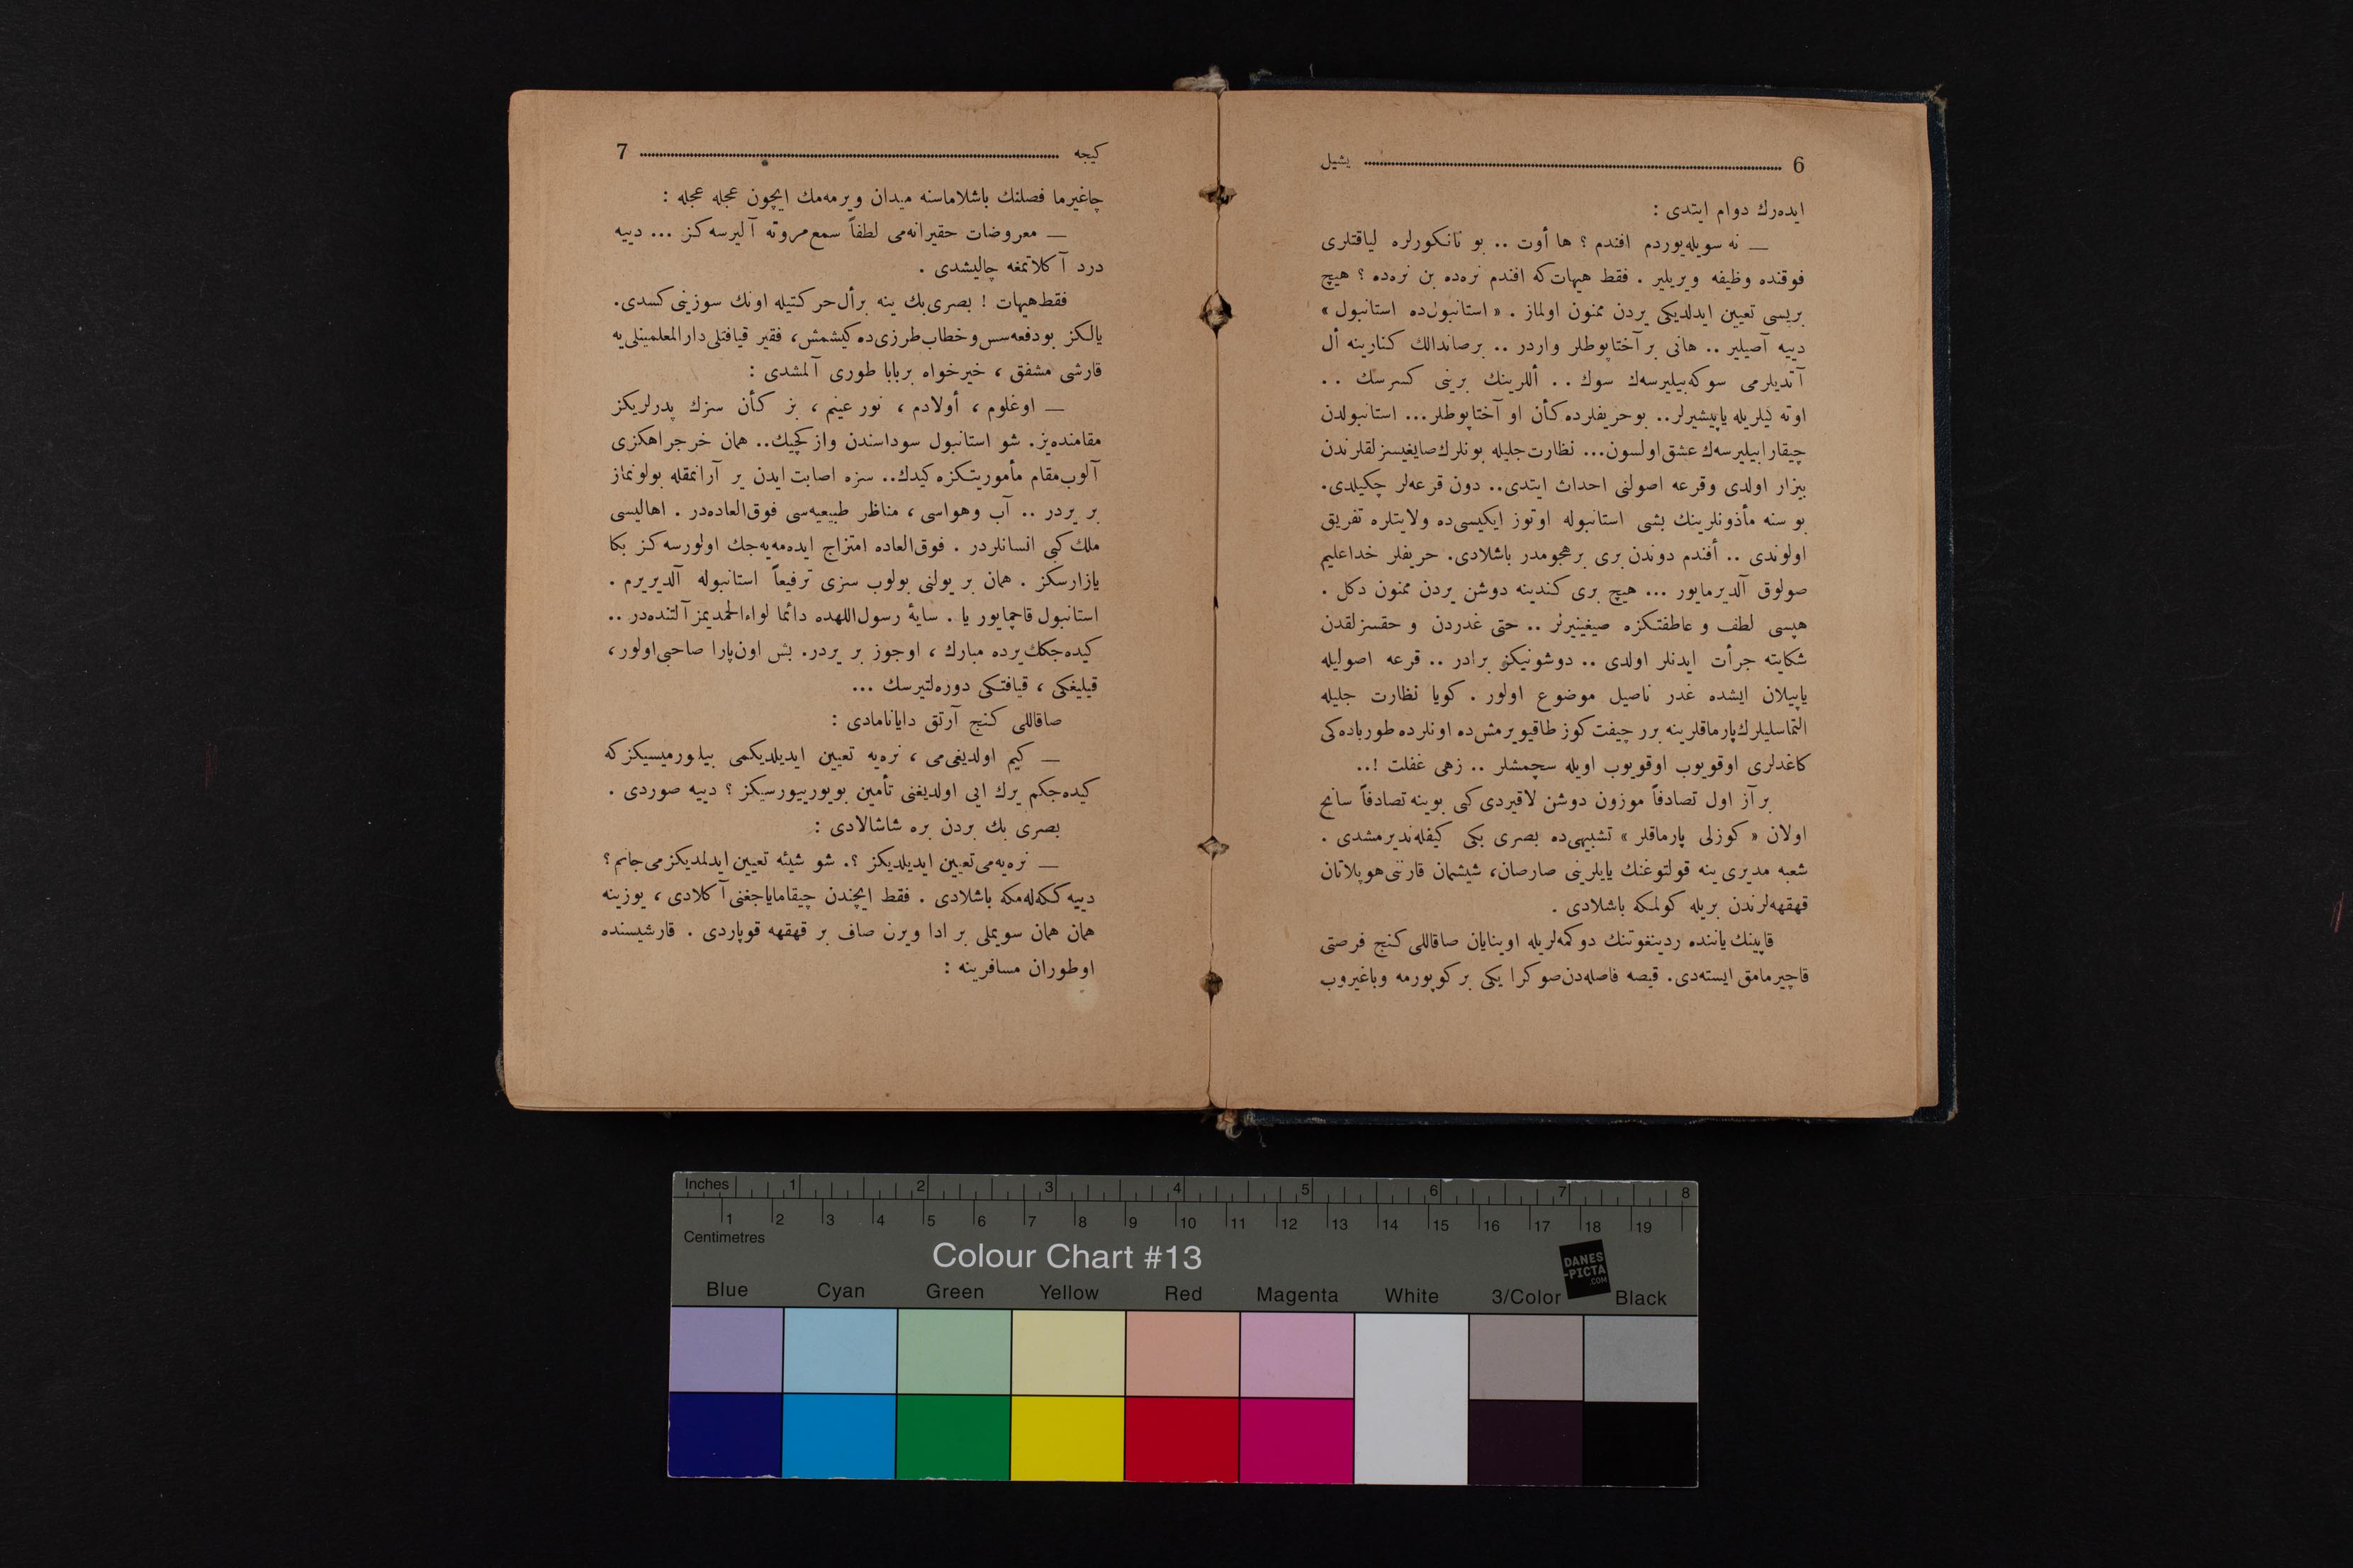 6 یشیل
ایده‌رك دوام ایتدی :
— نه سویله‌یوردم افندم ؟ ها أوت .. بو نانكورلره لیاقتلری
فوقنده وظیفه ویریلیر . فقط هیهات كه افندم نره‌ده بن نره‌ده ؟ هیچ
بریسی تعیین ایدلدیكی یردن ممنون اولماز . « استانبول‌ده استانبول »
دییه آصیلیر .. هانی بر آختاپوطلر واردر .. برصاندالك كنارینه أل
آتدیلرمی سوكه‌بیلیرسه‌ك سوك .. أللرینك برینی كسرسك ..
اوته كیلریله یاپیشیرلر.. بوحریفلرده كأن او آختاپوطلر... استانبولدن
چیقارابیلیرسه‌ك عشق‌اولسون... نظارت‌جلیله بونلرك‌صایغیسزلقلرندن
بیزار اولدی وقرعه اصولنی احداث ایتدی.. دون قرعه‌لر چكیلدی.
بو سنه مأذونلرینك بشی استانبوله اوتوز ایكیسی‌ده ولایتلره تفریق
اولوندی .. أفندم دوندن بری برهجومدر باشلادی. حریفلر خداعلیم
صولوق آلدیرمایور ... هیچ بری كندینه دوشن یردن ممنون دكل .
هپسی لطف و عاطفتكزه صیغینیرلر .. حتی غدردن و حقسزلقدن
شكایته جرأت ایدنلر اولدی .. دوشونیكز برادر .. قرعه اصولیله
یاپیلان ایشده غدر ناصیل موضوع اولور . كویا نظارت جلیله
التماسلیلرك‌پارماقلرینه برر چیفت كوز طاقیویرمش‌ده اونلرده طورباده‌كی
كاغدلری اوقویوب اوقویوب اویله سچمشلر .. زهی غفلت !..
برآز اول تصادفاً موزون دوشن لاقیردی كبی بوینه تصادفاً سانح
اولان « كوزلی پارماقلر » تشبیهی‌ده بصری بكی كیفله‌ندیرمشدی .
شعبه مدیری ینه قولتوغنك یایلرینی صارصان، شیشمان قارننی هوپلاتان
قهقهه‌لرندن بریله كولمكه باشلادی .
قاپینك یاننده ردینغوتنك دوكمه‌لریله اوینایان صاقاللی كنج فرصتی
قاچیرمامق ایسته‌دی. قیصه فاصله‌دن‌صوكرا یكی بر كوپورمه وباغیروب
كیجه 7
چاغیرما فصلنك باشلاماسنه میدان ویرمه‌مك ایچون عجله عجله :
— معروضات حقیرانه‌می لطفاً سمع‌مروته آلیرسه‌كز ... دییه
درد آكلاتمغه چالیشدی .
فقط‌هیهات ! بصری‌بك ینه برأل‌حركتیله اونك سوزینی‌كسدی.
یالكز بودفعه‌سس‌وخطاب‌طرزی‌ده كیشمش، فقیر قیافتلی‌دارالمعلمینلی‌یه
قارشی مشفق ، خیرخواه بربابا طوری آلمشدی :
— اوغلوم ، أولادم ، نور عینم ، بز كأن سزك پدرلریكز
مقامنده‌یز. شو استانبول سوداسندن واز كچیك.. همان خرجراهكزی
آلوب‌مقام مأموریتكزه كیدك.. سزه اصابت ایدن یر آرانمقله بولونماز
بر یردر .. آب وهواسی ، مناظر طبیعیه‌سی فوق‌العاده‌در . اهالیسی
ملك كبی انسانلردر . فوق‌العاده امتزاج ایده‌مه‌یه‌جك اولورسه‌كز بكا
یازارسكز . همان بر یولنی بولوب سزی ترفیعاً استانبوله آلدیریرم .
استانبول قاچمایور یا . سایۀ رسول‌اللهده دائما لواءالحمدیمز آلتنده‌در ..
كیده‌جكك‌یرده مبارك ، اوجوز بر یردر. بش اون‌پارا صاحبی‌اولور،
قیلیغكی ، قیافتكی دوزه‌لتیرسك ...
صاقاللی كنج آرتق دایانامادی :
— كیم اولدیغی‌می ، نره‌یه تعیین ایدیلدیكمی بیلورمیسیكزكه
كیده‌جكم یرك ایی اولدیغنی تأمین بویورییورسیكز ؟ دییه صوردی .
بصری بك بردن بره شاشالادی :
— نره‌یه‌می‌تعیین ایدیلدیكز ؟. شو شیئه تعیین ایدلمدیكزمی‌جانم؟
دییه كككه‌له‌مكه باشلادی . فقط ایچندن چیقامایاجغنی‌آكلادی ، یوزینه
همان همان سویملی بر ادا ویرن صاف بر قهقهه قوپاردی . قارشیسنده
اوطوران مسافرینه :
Inches 1 2 3 4 5 6 7 8
1 2 3 4 5 6 7 8 9 10 11 12 13 14 15 16 17 18 19
Centimetres
Colour Chart #13
DANES
-PICTA
.COM
Blue Cyan Green Yellow Red Magenta White 3/Color Black